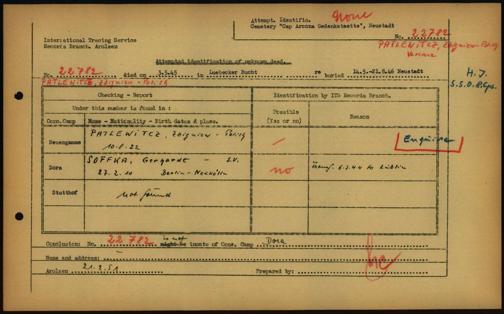 Attempt. Identific. None
Cemetery "Cap Arcona Gedenkstaette", Neustadt
International Tracing Service
Records Branch, Arolsen
No. 22782
PATLEWITCZ, Zbigniew
Attempted identification of unknown dead.
No. 22782 died on 3.5.45 in Luebecker Bucht re buried 14.5.-21.6.46 Neustadt
PATLEWITCZ, Zbigniew
H.J.
Checking - Report
Identification by ITS Records Branch.
Under this number is found in :
Possible
(Yes or no)
Reason
Conc.Camp
Name - Nationality - Birth dates & place.
Neuengamme
PATLEWITCZ, Zbigniew -
10.8.22
Enquire
Dora
SOFFKA, Gerhardt -
27.2.10 Berlin - Neukölln
no
Transf. 6.2.44 to Lublin
Stutthof
not found
Conclusion: No. 22782 is not inmate of Conc. Camp Dora
Name and address: -
Arolsen 21.2.51
Prepared by: